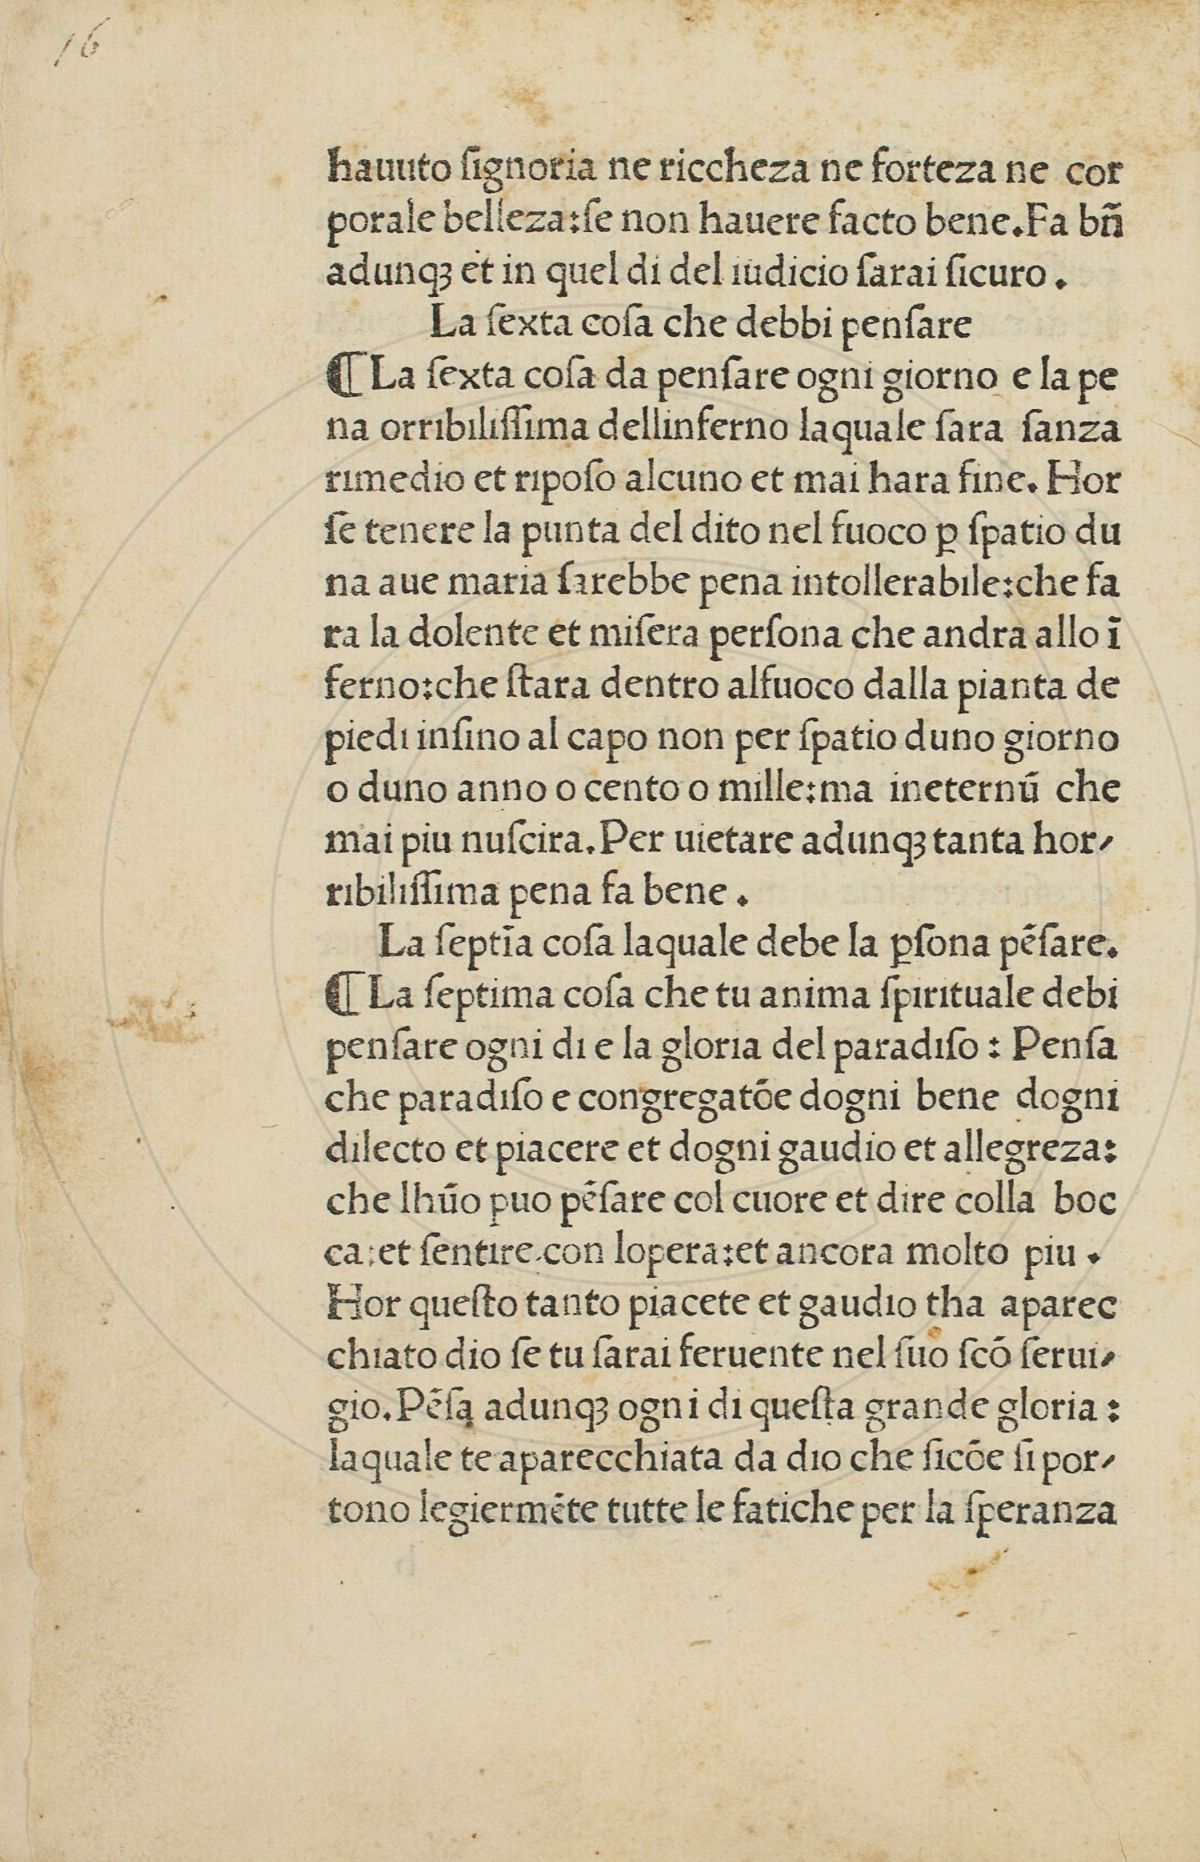 16
hauuto ſignoria ne riccheza ne forteza ne cor
porale belleza:ſe non hauere facto bene.Fa bñ
adunqꝫ et in quel di del iudicio ſarai ſicuro.
La ſexta coſa che debbi penſare
¶ La ſexta coſa da penſare ogni giorno e la pe
na orribiliſſima dellinferno laquale ſara ſanza
rimedio et ripoſo alcuno et mai hara fine. Hor
ſe tenere la punta del dito nel fuoco ꝑ ſpatio du
na aue maria ſarebbe pena intollerabile:che fa
ra la dolente et miſera perſona che andra allo ī
ferno:che ſtara dentro alfuoco dalla pianta de
piedi inſino al capo non per ſpatio duno giorno
o duno anno o cento o mille:ma ineternū che
mai piu nuſcira.Per uietare adunqꝫ tanta hor⸗
ribiliſſima pena fa bene.
La ſeptīa coſa laquale debe la ꝑſona pēſare.
¶ La ſeptima coſa che tu anima ſpirituale debi
penſare ogni di e la gloria del paradiſo: Penſa
che paradiſo e congregatōe dogni bene dogni
dilecto et piacere et dogni gaudio et allegreza:
che lhūo puo pēſare col cuore et dire colla boc
ca:et ſentire.con lopera:et ancora molto piu.
Hor queſto tanto piacete et gaudio tha aparec
chiato dio ſe tu ſarai feruente nel ſuo ſcō ſerui⸗
gio.Pēſa adunqꝫ ogni di queſta grande gloria:
laquale te aparecchiata da dio che ſicōe ſi por⸗
tono legiermēte tutte le fatiche per la ſperanza